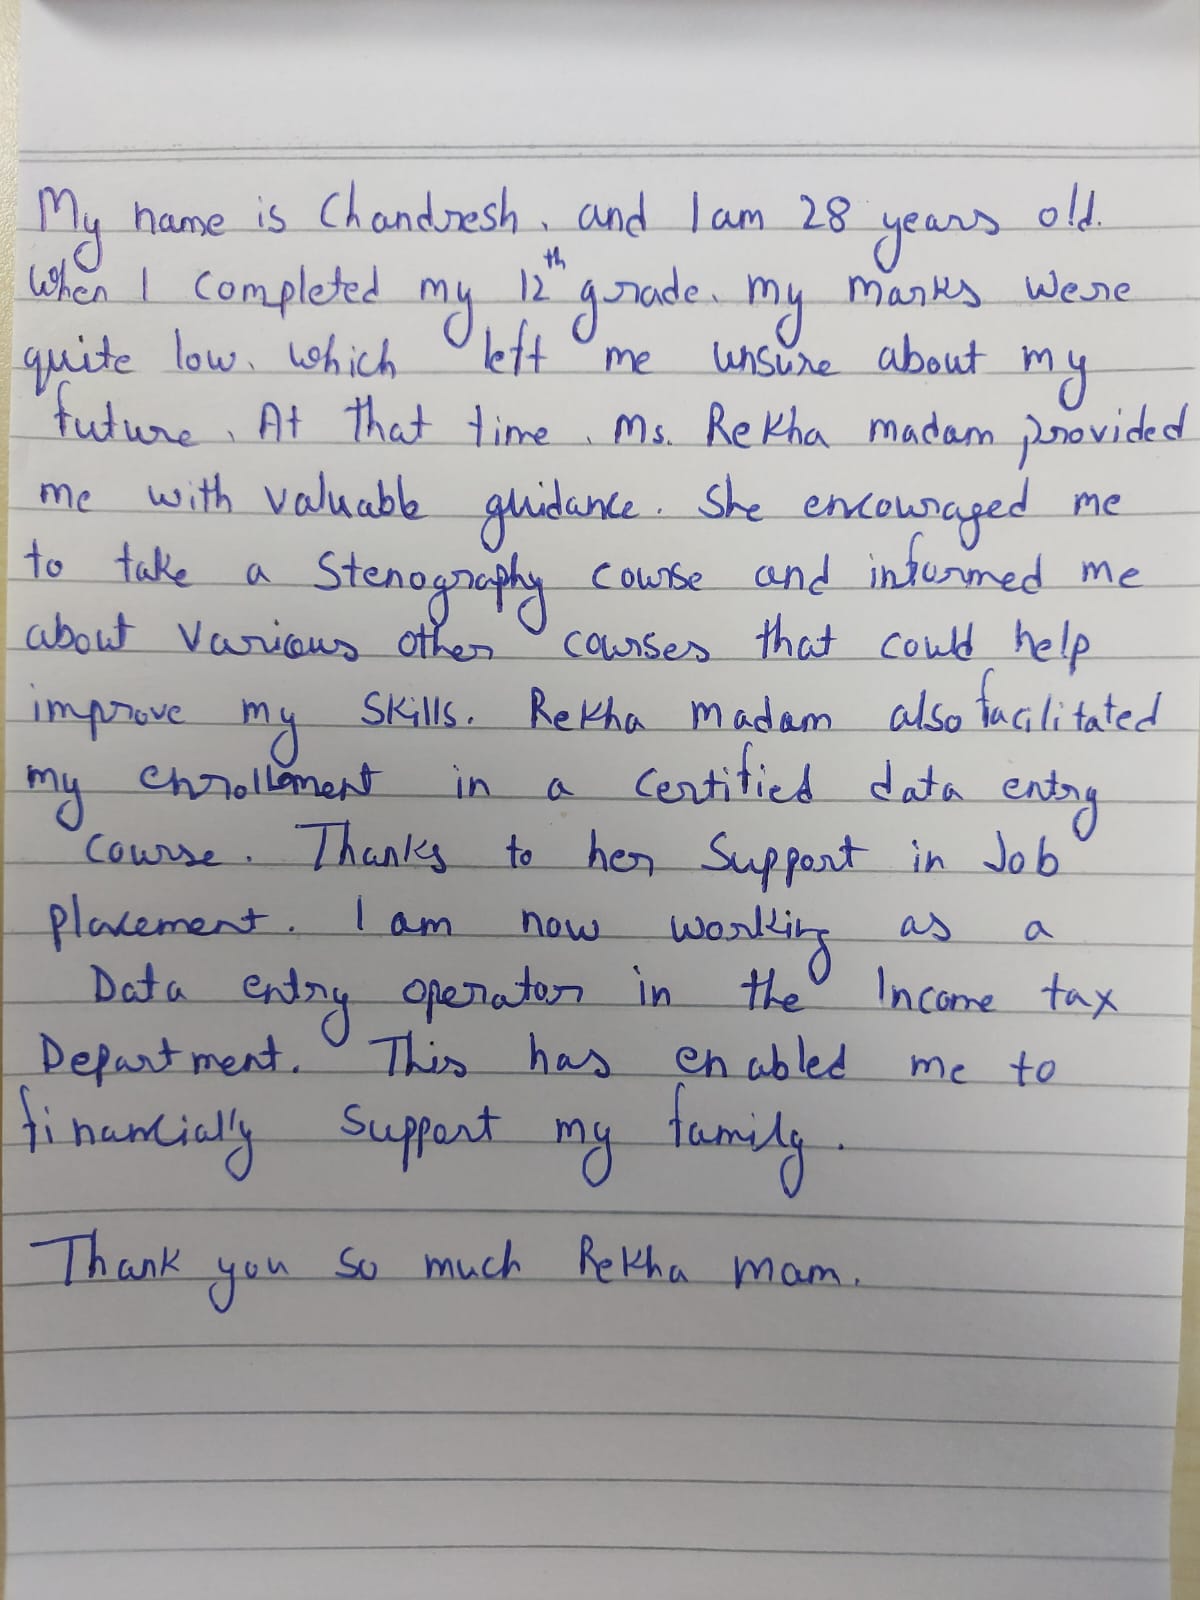 My name is Chandresh, and I am 28 years old.
When I completed my 12th grade, my marks were
quite low, which left me unsure about my
future. At that time, Ms. Rekha madam provided
me with valuable guidance. She encouraged me
to take a Stenography course and informed me
about various other courses that could help
improve my skills. Rekha madam also facilitated
my enrollment in a certified data entry
course. Thanks to her support in Job
placement. I am now working as a
Data entry operator in the Income tax
Department. This has enabled me to
financially support my family.
Thank you so much Rekha mam.